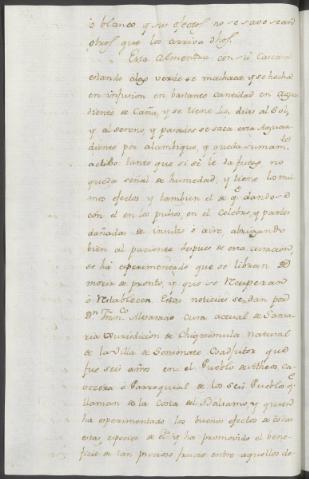 ó blanco, y sus efectos no se save sean
otros que los arriva dhos.
Esta Almendra con su Cascara
estando algo verde se machaca, y se hecha
en infusion en bastante cantidad en Agua
diente de Caña, y se tiene dias al Sol,
y al sereno y pasados se saca esta Aguar-
diente por alambique, y queda sumamte
activo tanto que si se le da fuego no
queda señal de humedad, y tiene los mis
mos efectos y tambien el de q dandose
con él en los pulsos, en el Celebro, y partes
dañadas de insulto ó aire, abrigando
bien al paciente despues de esta curacion
se ha experimentado que se libran de
morir de pronto, y que se recuperan
ó restablecen. Estas noticias se dan por
Dn Franco Alvarado Cura actual de
Jurisdicion de Chiquimula natural
de la Villa de Sonsonate Coadjutor que
fue seis años en el Pueblo de
cavecera ó Parroquial de los seis Pueblos q
llaman de la Costa del Balsamo, y quien
ha experimentado los buenos efectos de estas
especies de el, y ha promovido el bene-
ficio de tan precioso fruto entre aquellos de-